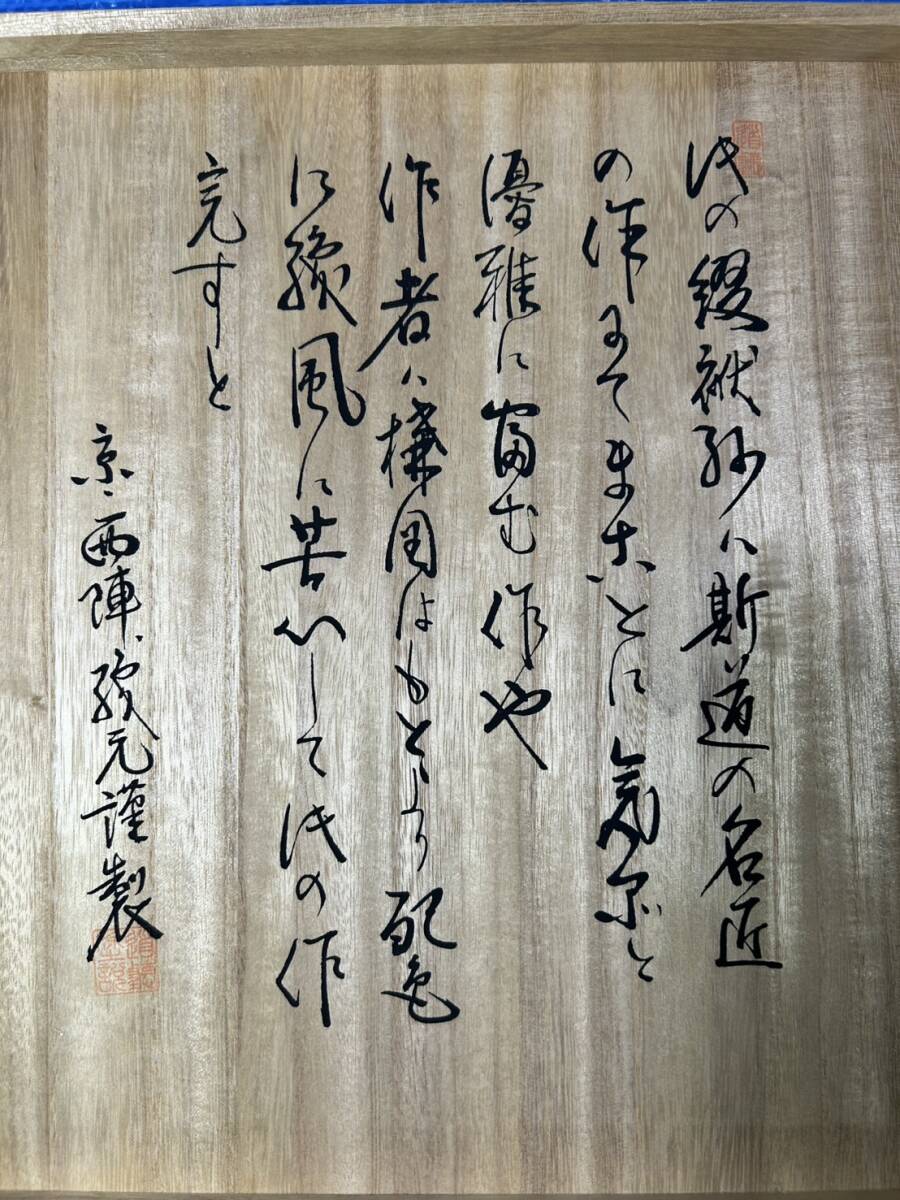 此の綴袱紗ハ斯道の名匠
の作にてまことに気品と
優雅に富む作や
作者ハ構図はもとより配色
に織風に苦心して此の作
完すと
京、西陣、織元謹製